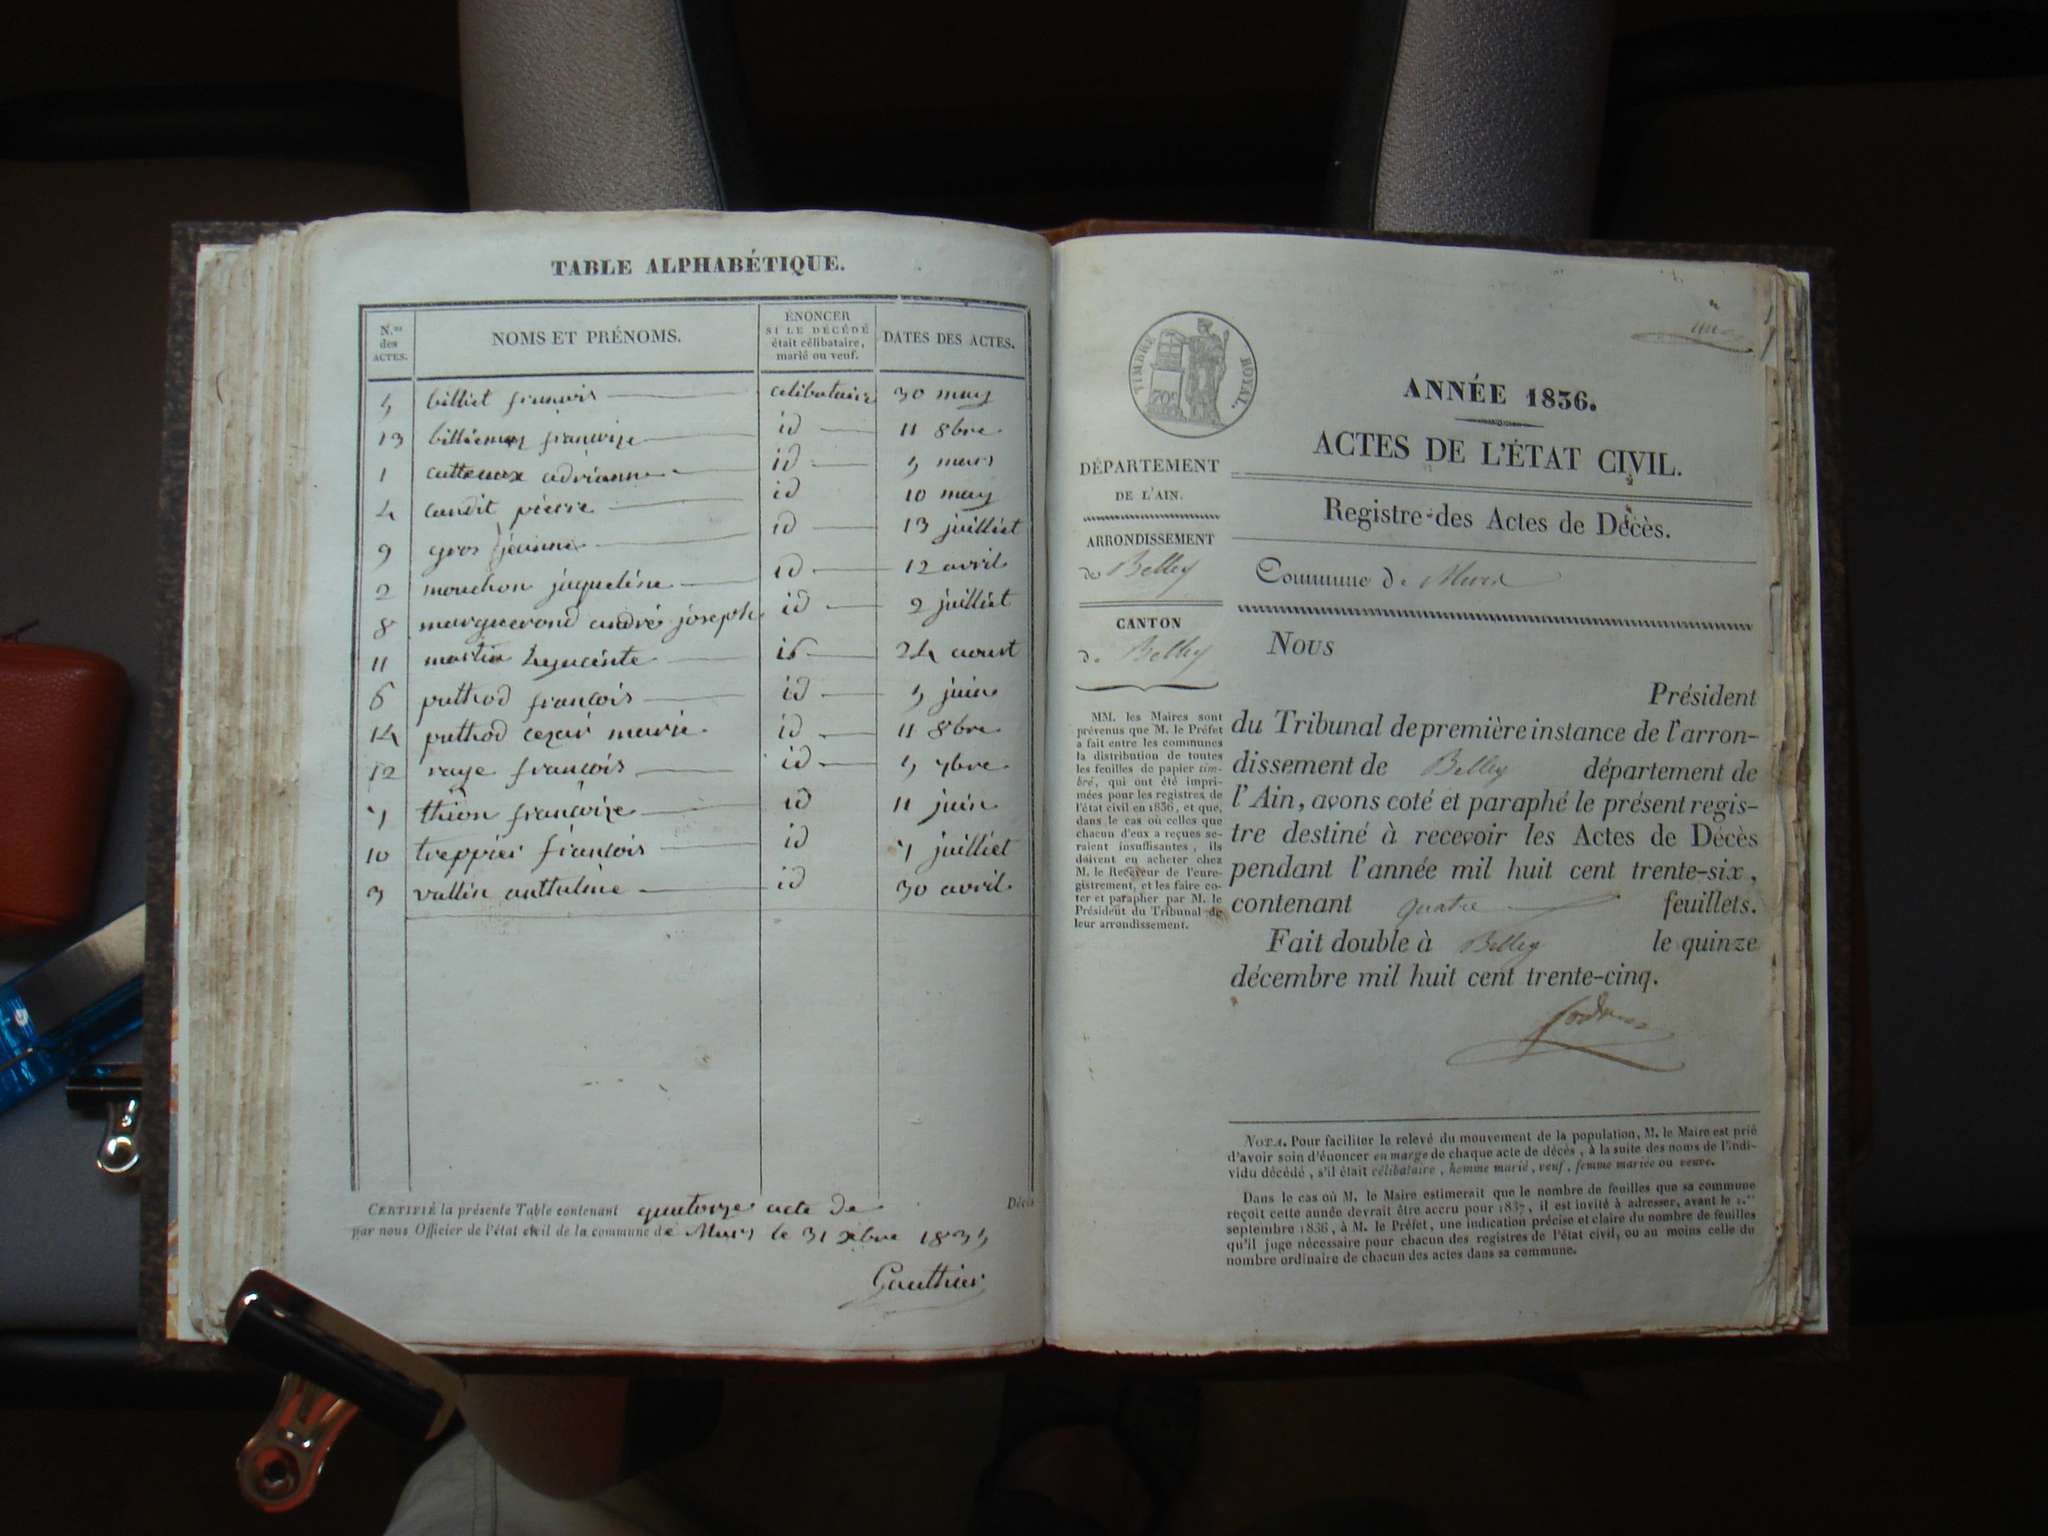 TABLE ALPHABÉTIQUE.
N.os des ACTES.
NOMS ET PRÉNOMS.
ÉNONCER SI LE DÉCÉDÉ était célibataire, marié ou veuf.
DATES DES ACTES.
5 billiet françois célibataire 30 may
13 billiemaz françoize id 11 8bre
1 adrianne id 5 mars
4 candit pierre id 10 may
9 gros jeanne id 13 juilliet
2 mouchon jaqueline id 12 avril
8 marguerond andré joseph id 2 juilliet
11 martin hyacinte id 24 aoust
6 puthod françois id 5 juin
14 puthod cezar marie id 11 8bre
12 raye françois id 5 7bre
7 thion françoize id 11 juin
10 treppier françois id 7 juilliet
3 vallin anthelme id 30 avril
CERTIFIÉ la présente Table contenant quatorze acte de Décès
par nous Officier de l'état civil de la commune de Murs le 31 xbre 1835
Gauthier
une
TIMBRE ROYAL.
70c
ANNÉE 1836.
ACTES DE L'ÉTAT CIVIL.
Registre des Actes de Décès.
Commune de Murs
DÉPARTEMENT
DE L'AIN.
ARRONDISSEMENT
de Belley
CANTON
de Belley
MM. les Maires sont
prévenus que M. le Préfet
a fait entre les communes
la distribution de toutes
les feuilles de papier tim-
bré, qui ont été impri-
mées pour les registres de
l'état civil en 1836, et que,
dans le cas où celles que
chacun d'eux a reçues se-
raient insuffisantes, ils
doivent en acheter chez
M. le Receveur de l'enre-
gistrement, et les faire co-
ter et parapher par M. le
Président du Tribunal de
leur arrondissement.
Nous
Président
du Tribunal de première instance de l'arron-
dissement de Belley département de
l'Ain, avons coté et paraphé le présent regis-
tre destiné à recevoir les Actes de Décès
pendant l'année mil huit cent trente-six,
contenant quatre feuillets.
Fait double à Belley le quinze
décembre mil huit cent trente-cinq.
NOTA. Pour faciliter le relevé du mouvement de la population, M. le Maire est prié
d'avoir soin d'énoncer en marge de chaque acte de décès, à la suite des noms de l'indi-
vidu décédé, s'il était célibataire, homme marié, veuf, femme mariée ou veuve.
Dans le cas où M. le Maire estimerait que le nombre de feuilles que sa commune
reçoit cette année devrait être accru pour 1837, il est invité à adresser, avant le 1.er
septembre 1836, à M. le Préfet, une indication précise et claire du nombre de feuilles
qu'il juge nécessaire pour chacun des registres de l'état civil, ou au moins celle du
nombre ordinaire de chacun des actes dans sa commune.